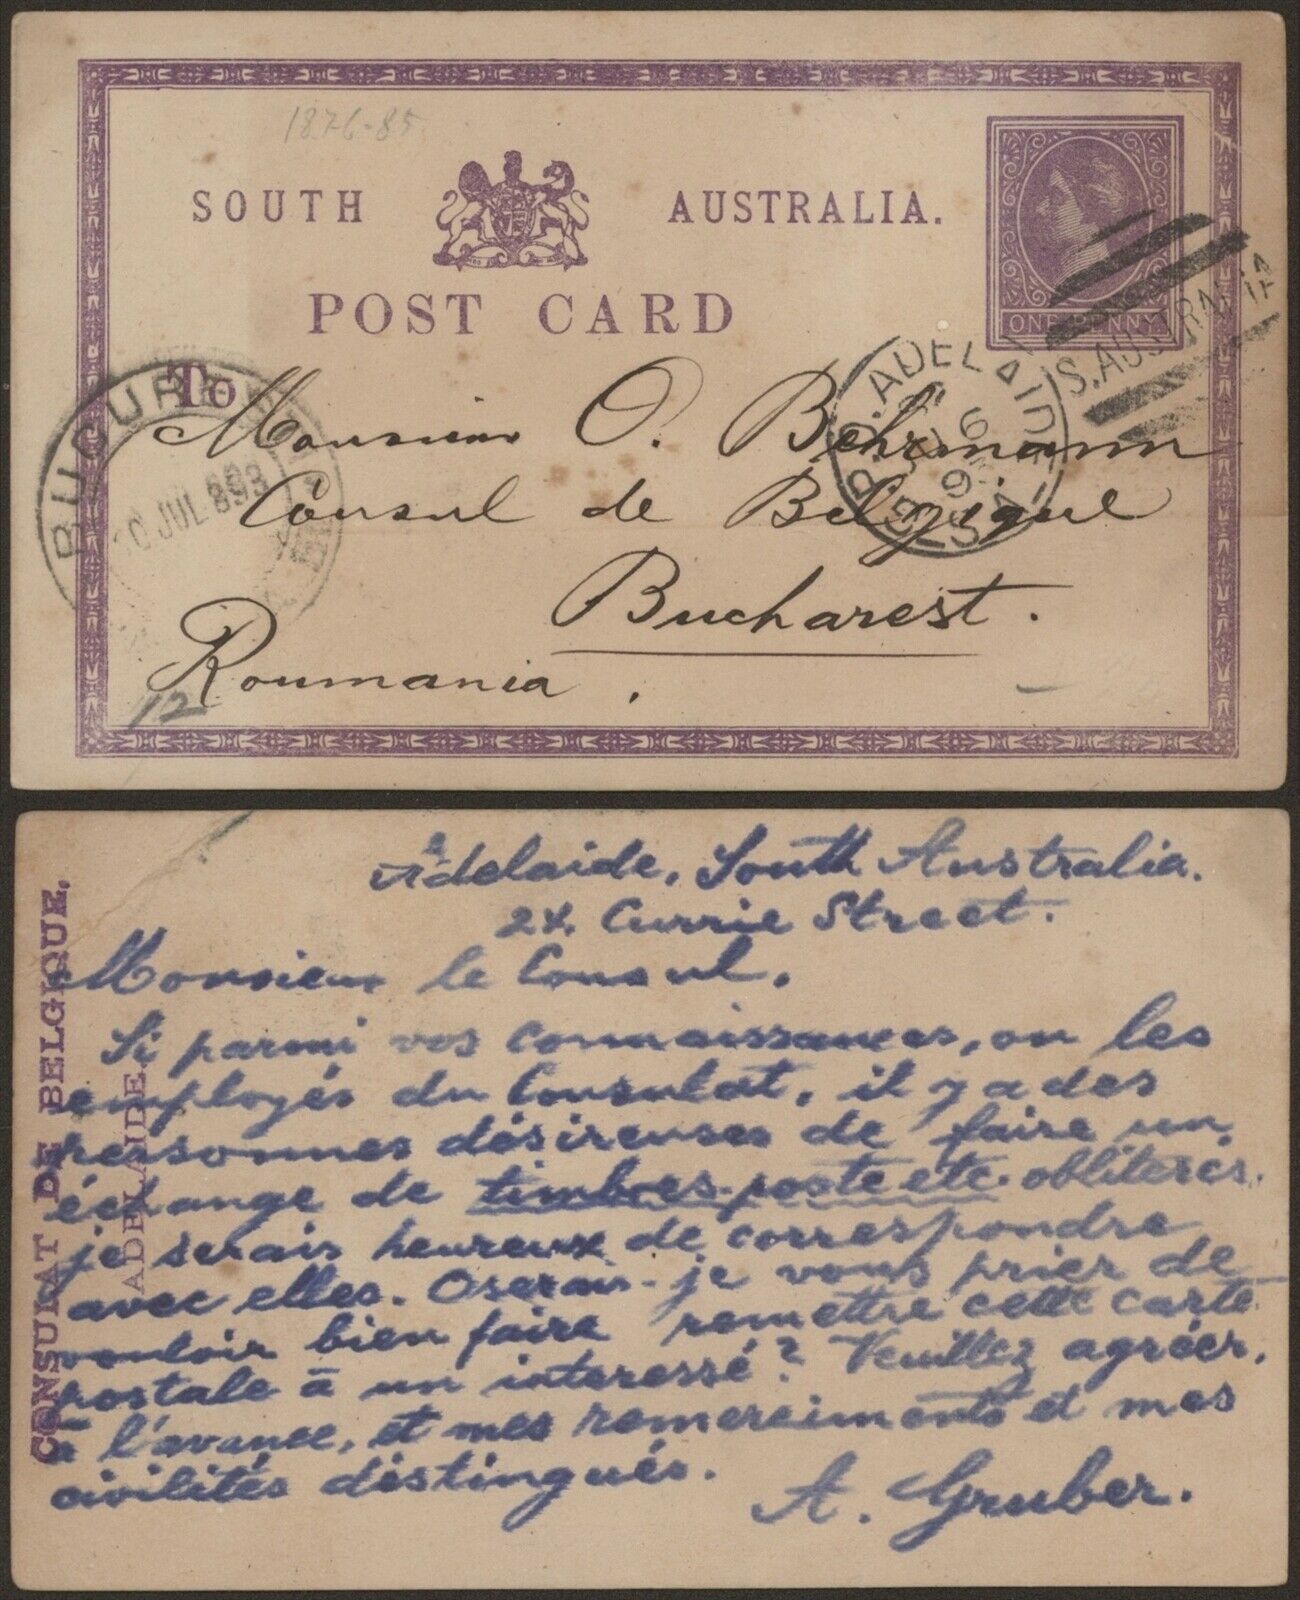 1876-85
SOUTH AUSTRALIA.
POST CARD
ONE PENNY
S. AUSTRALIA
ADELAIDE
To
BUCUR
JUL 893
Monsieur O. Behrmann
Consul de Belgique
Bucharest.
Roumania.
12
Adelaide, South Australia.
24 Currie Street.
Monsieur le Consul.
Si parmi vos connaissances, ou les
employés du Consulat, il y a des
personnes désireuses de faire un
échange de timbres-poste etc. obliterés.
je serais heureux de correspondre
avec elles. Oserais-je vous prier de
vouloir bien faire remettre cette carte
postale à un interessé? Veuillez agréer,
à l'avance, et mes remerciments et mes
civilités distingués.
A. Gruber.
CONSULAT DE BELGIQUE,
ADELAIDE.